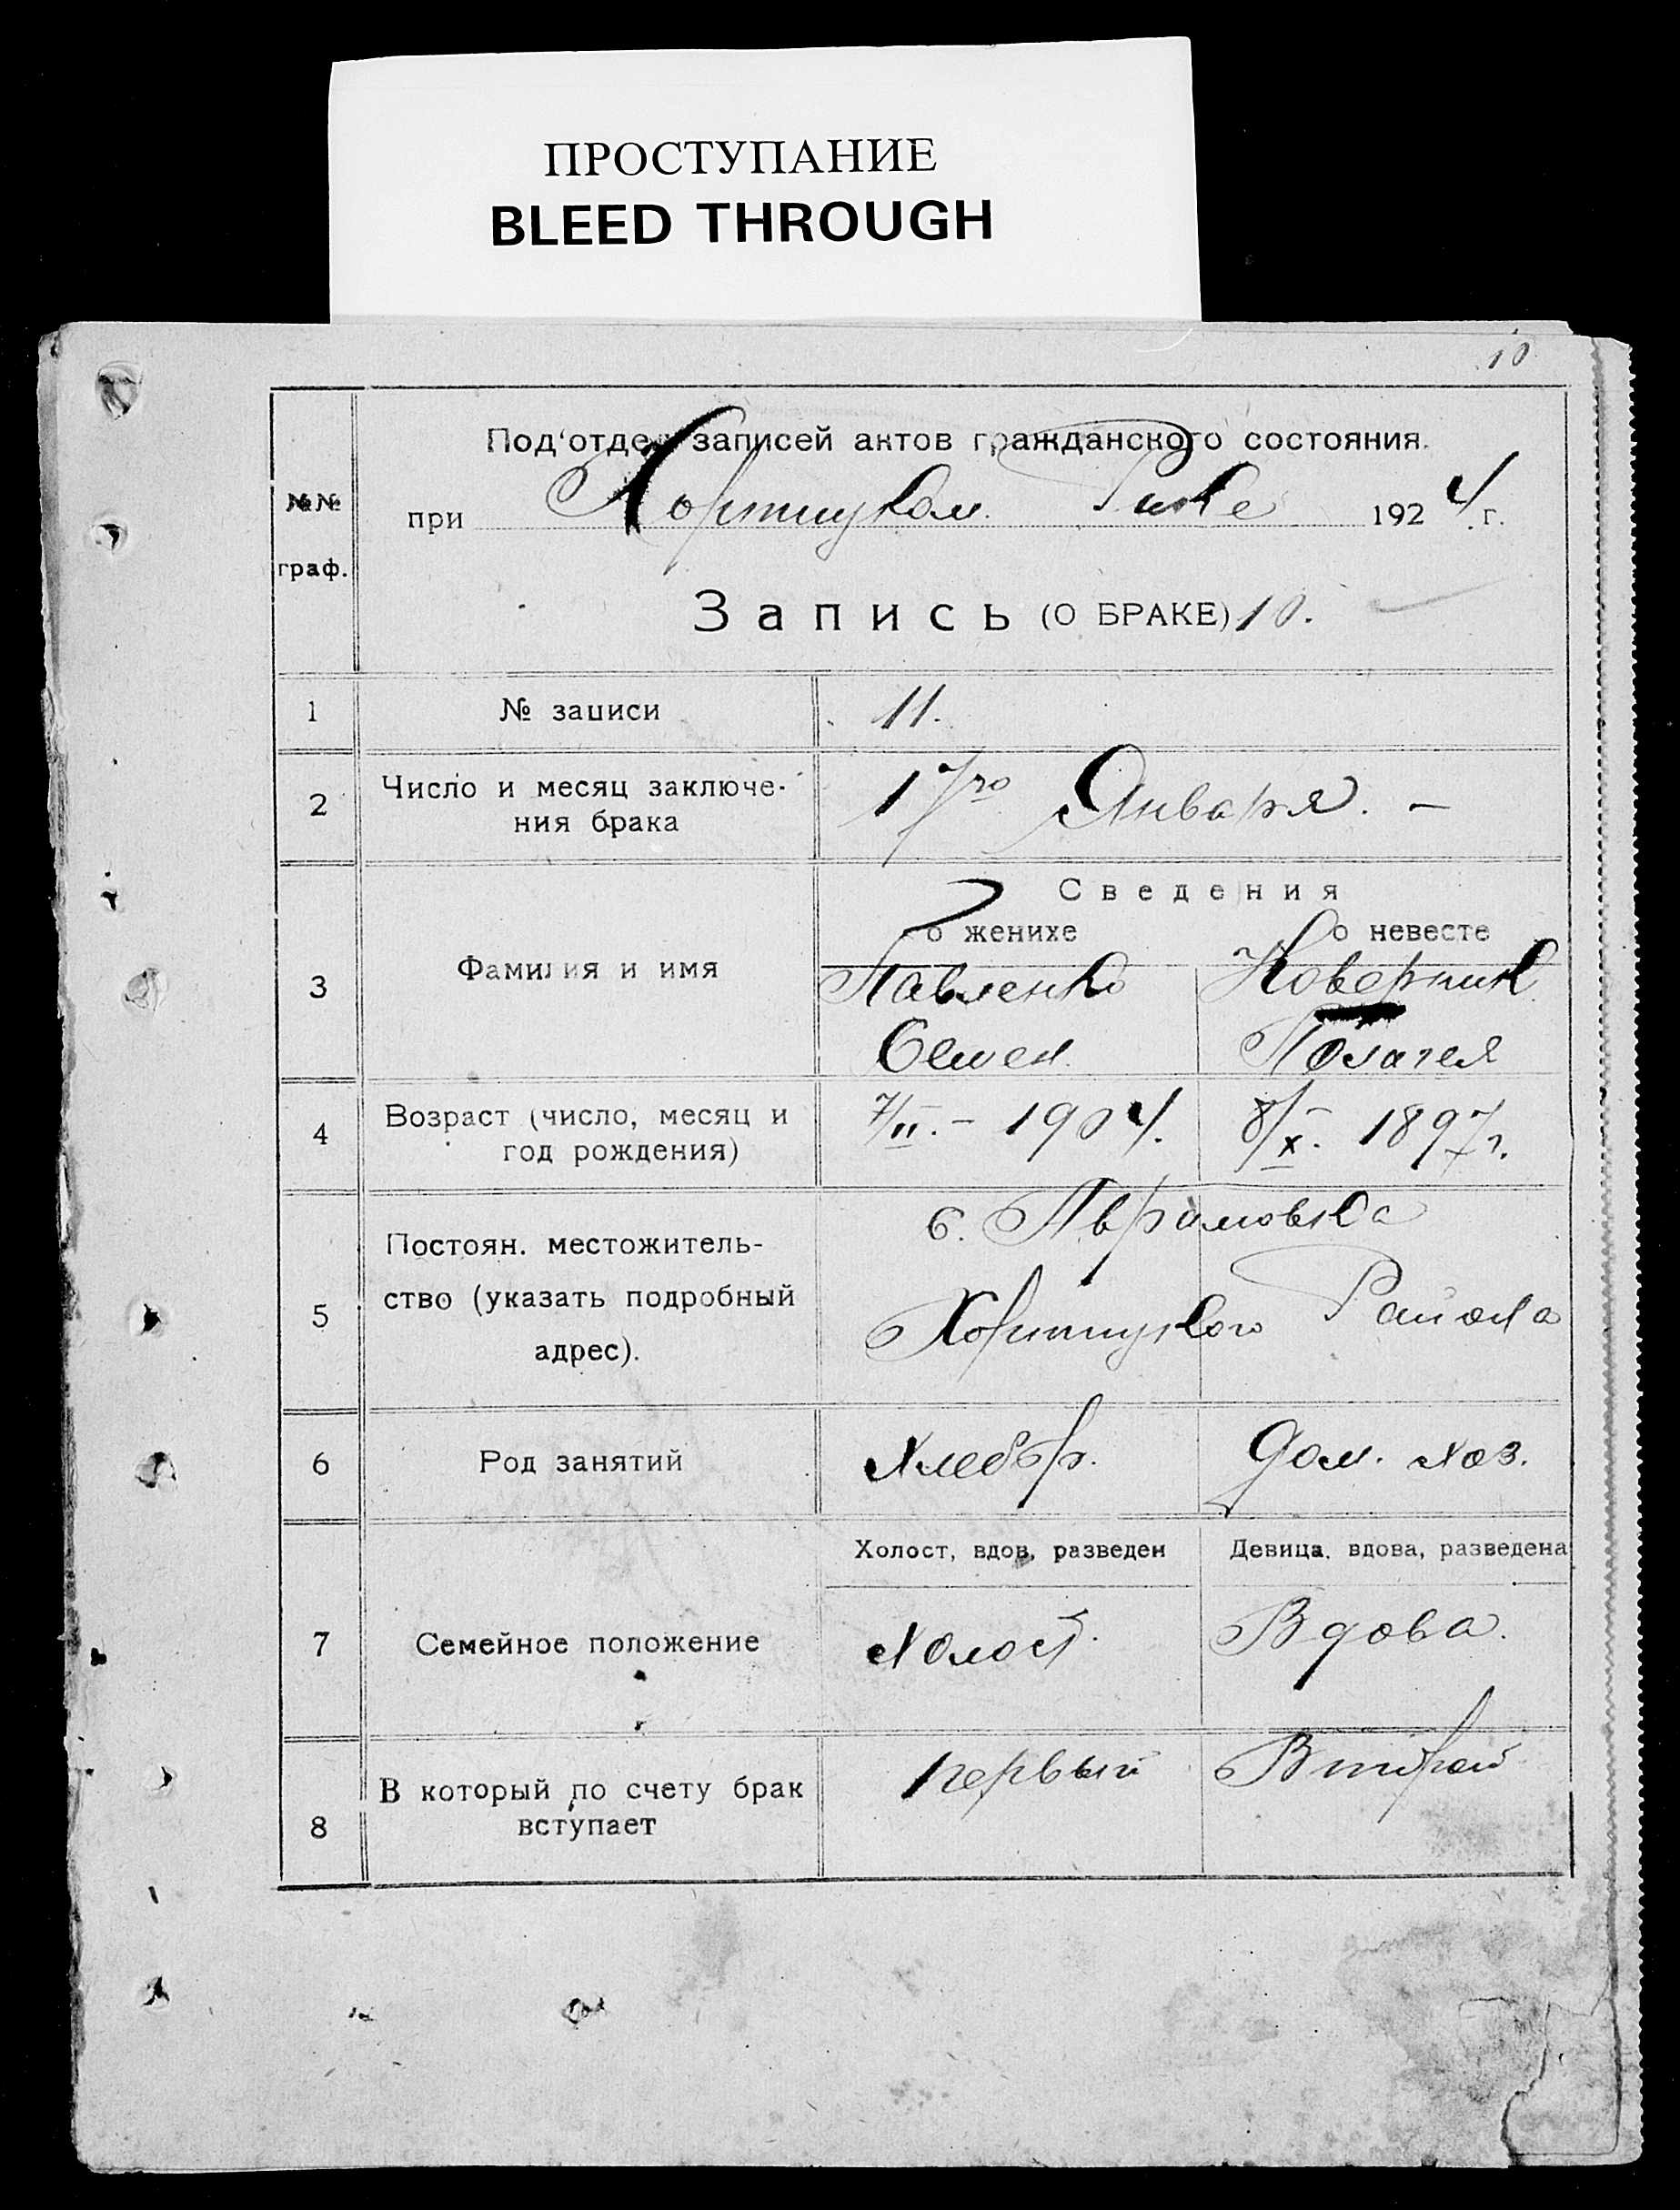 ПРОСТУПАНИЕ
BLEED THROUGH
10
Под'отдел записей актов гражданского состояния.
№№ граф.
при Хортицком Рике 1924 г.
Запись (О БРАКЕ) 10.
1 № записи 11.
2 Число и месяц заключе-
ния брака
17го Января. –
Сведения
о женихе о невесте
3 Фамилия и имя
Павленко
Семен
Коверник
Полагея
4 Возраст (число, месяц и
год рождения)
7/II. – 1904. 8/X. 1897 г.
5 Постоян. местожитель-
ство (указать подробный
адрес).
с. Аврамовка
Хортицкого Района
6 Род занятий Хлебор. Дом. хоз.
Холост, вдов, разведен Девица, вдова, разведена
7 Семейное положение Холост. Вдова.
8 В который по счету брак
вступает
первый Второй